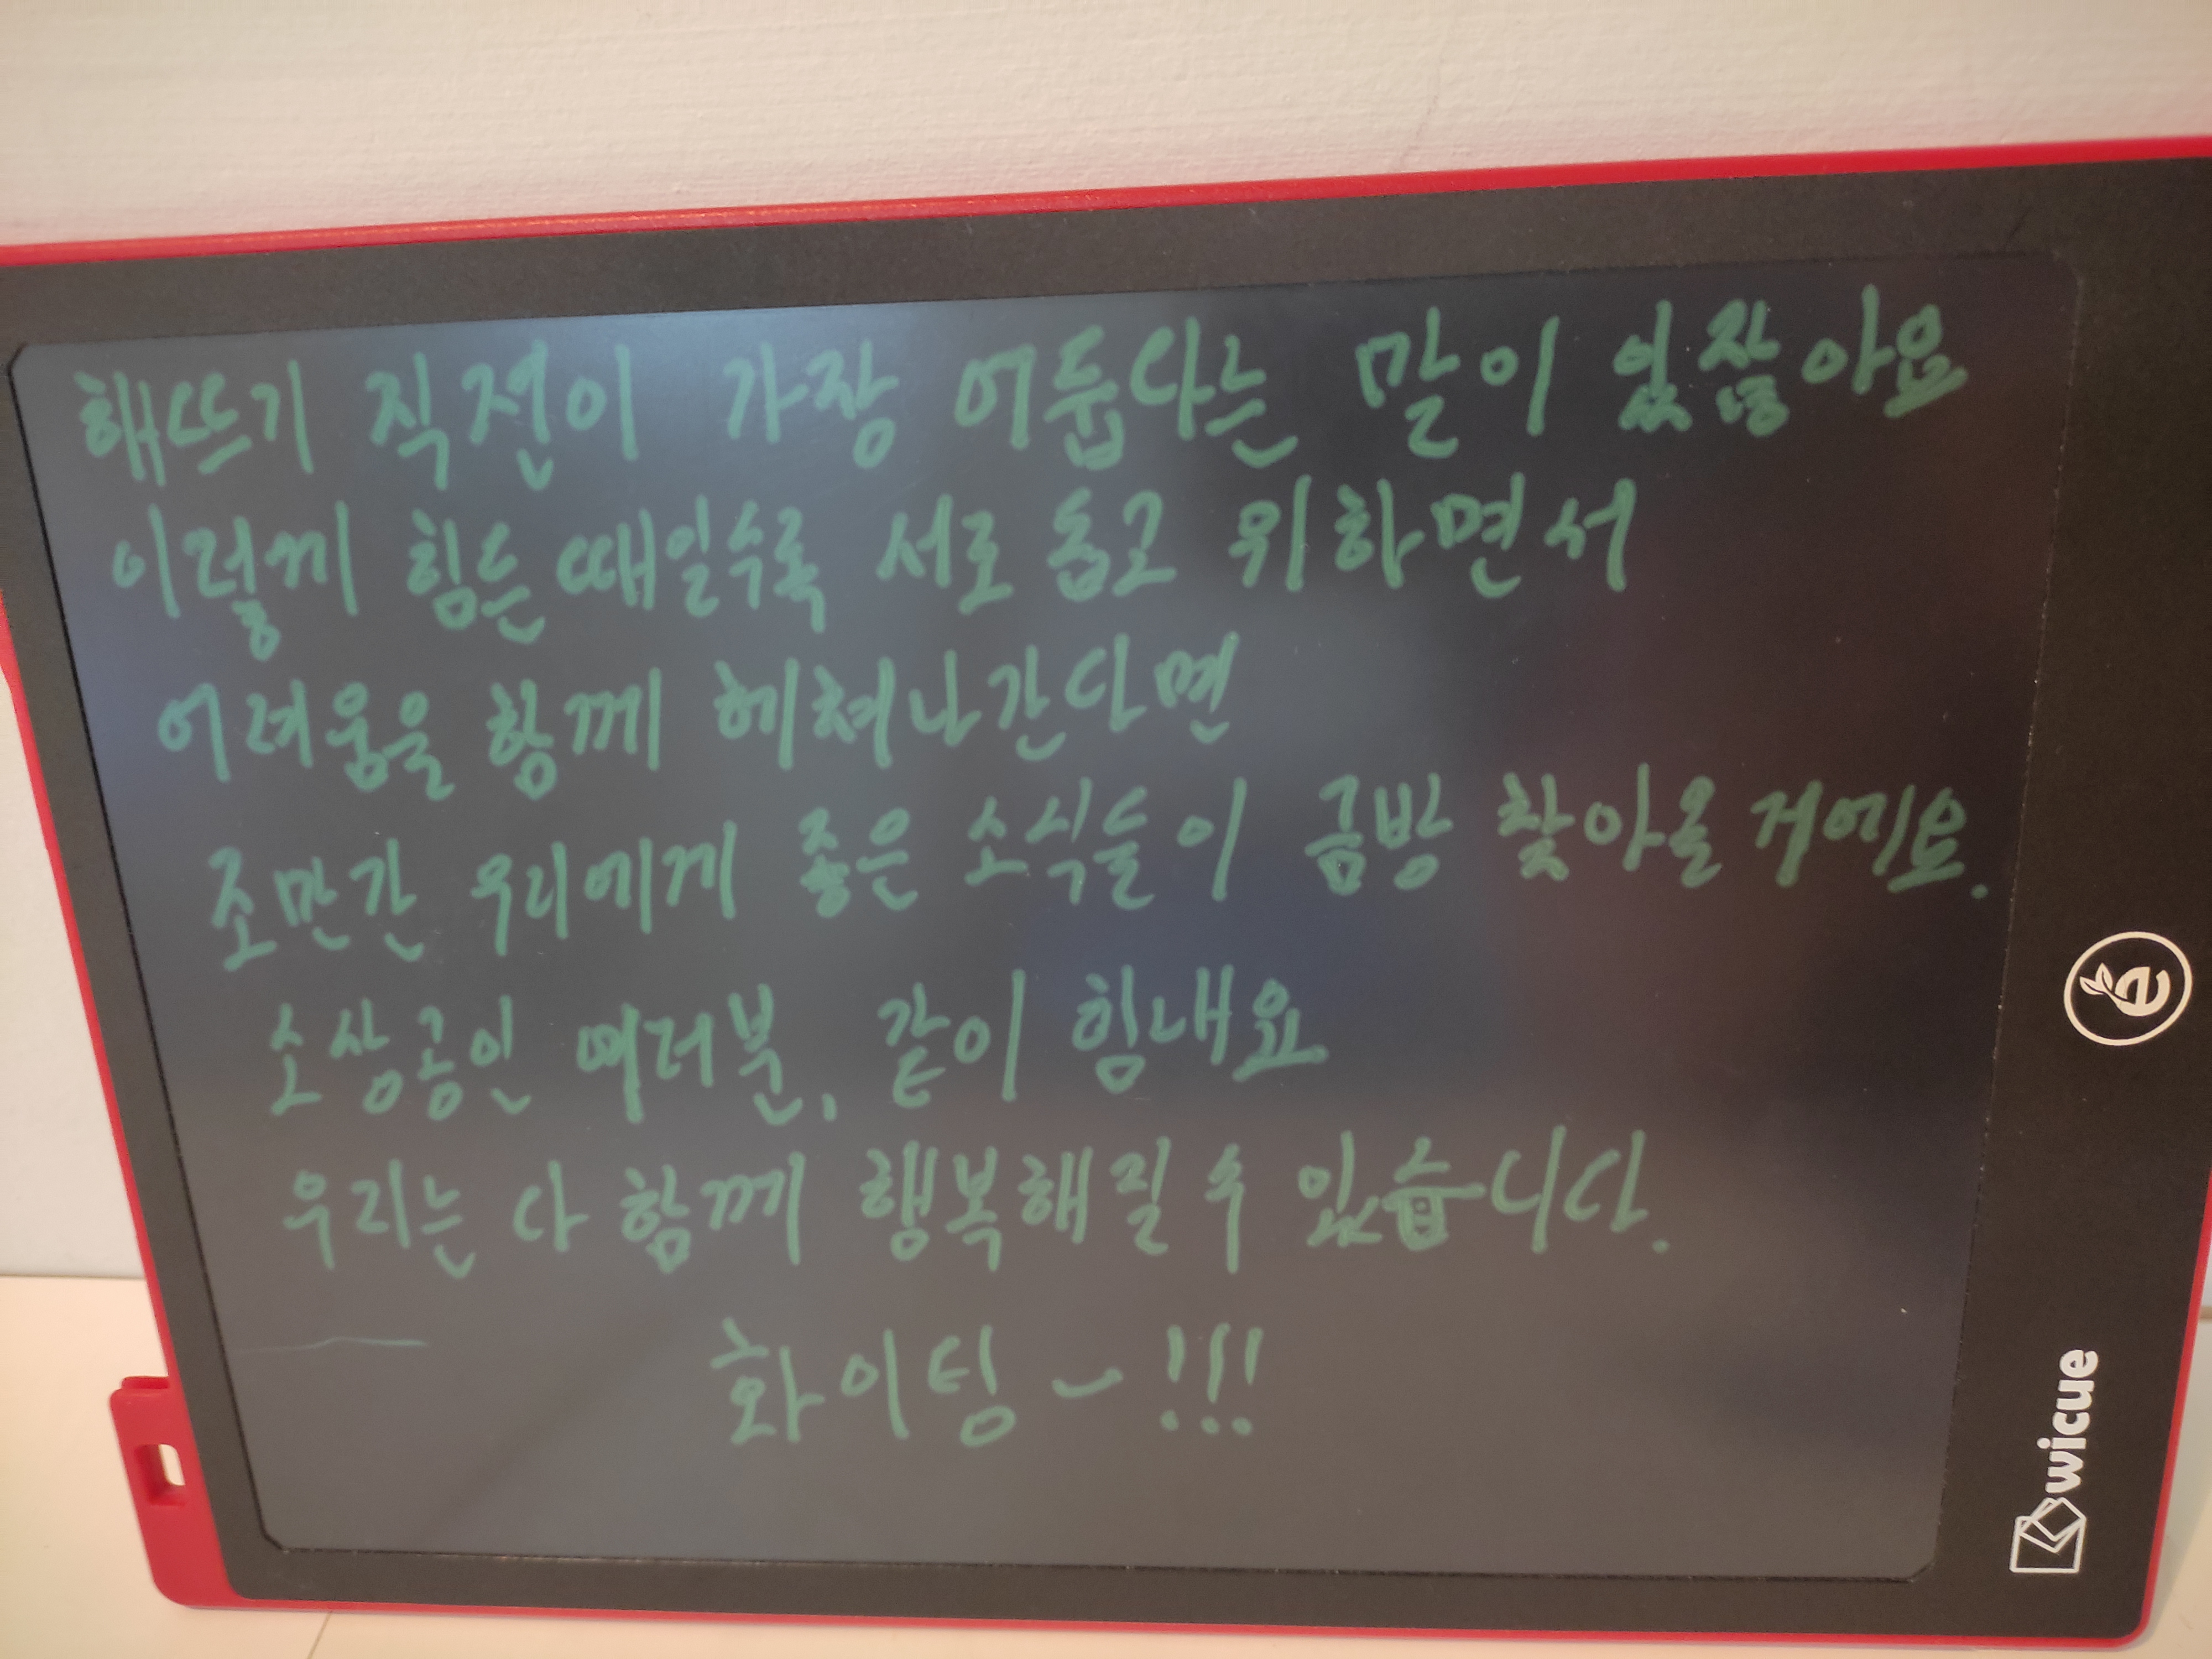 해뜨기 직전이 가장 어둡다는 말이 있잖아요
이렇게 힘든 때일수록 서로 돕고 위하면서
어려움을 함께 헤쳐나간다면
조만간 우리에게 좋은 소식들이 금방 찾아올 거에요.
소상공인 여러분, 같이 힘내요
우리는 다 함께 행복해질 수 있습니다.
화이팅~!!!
e
wicue